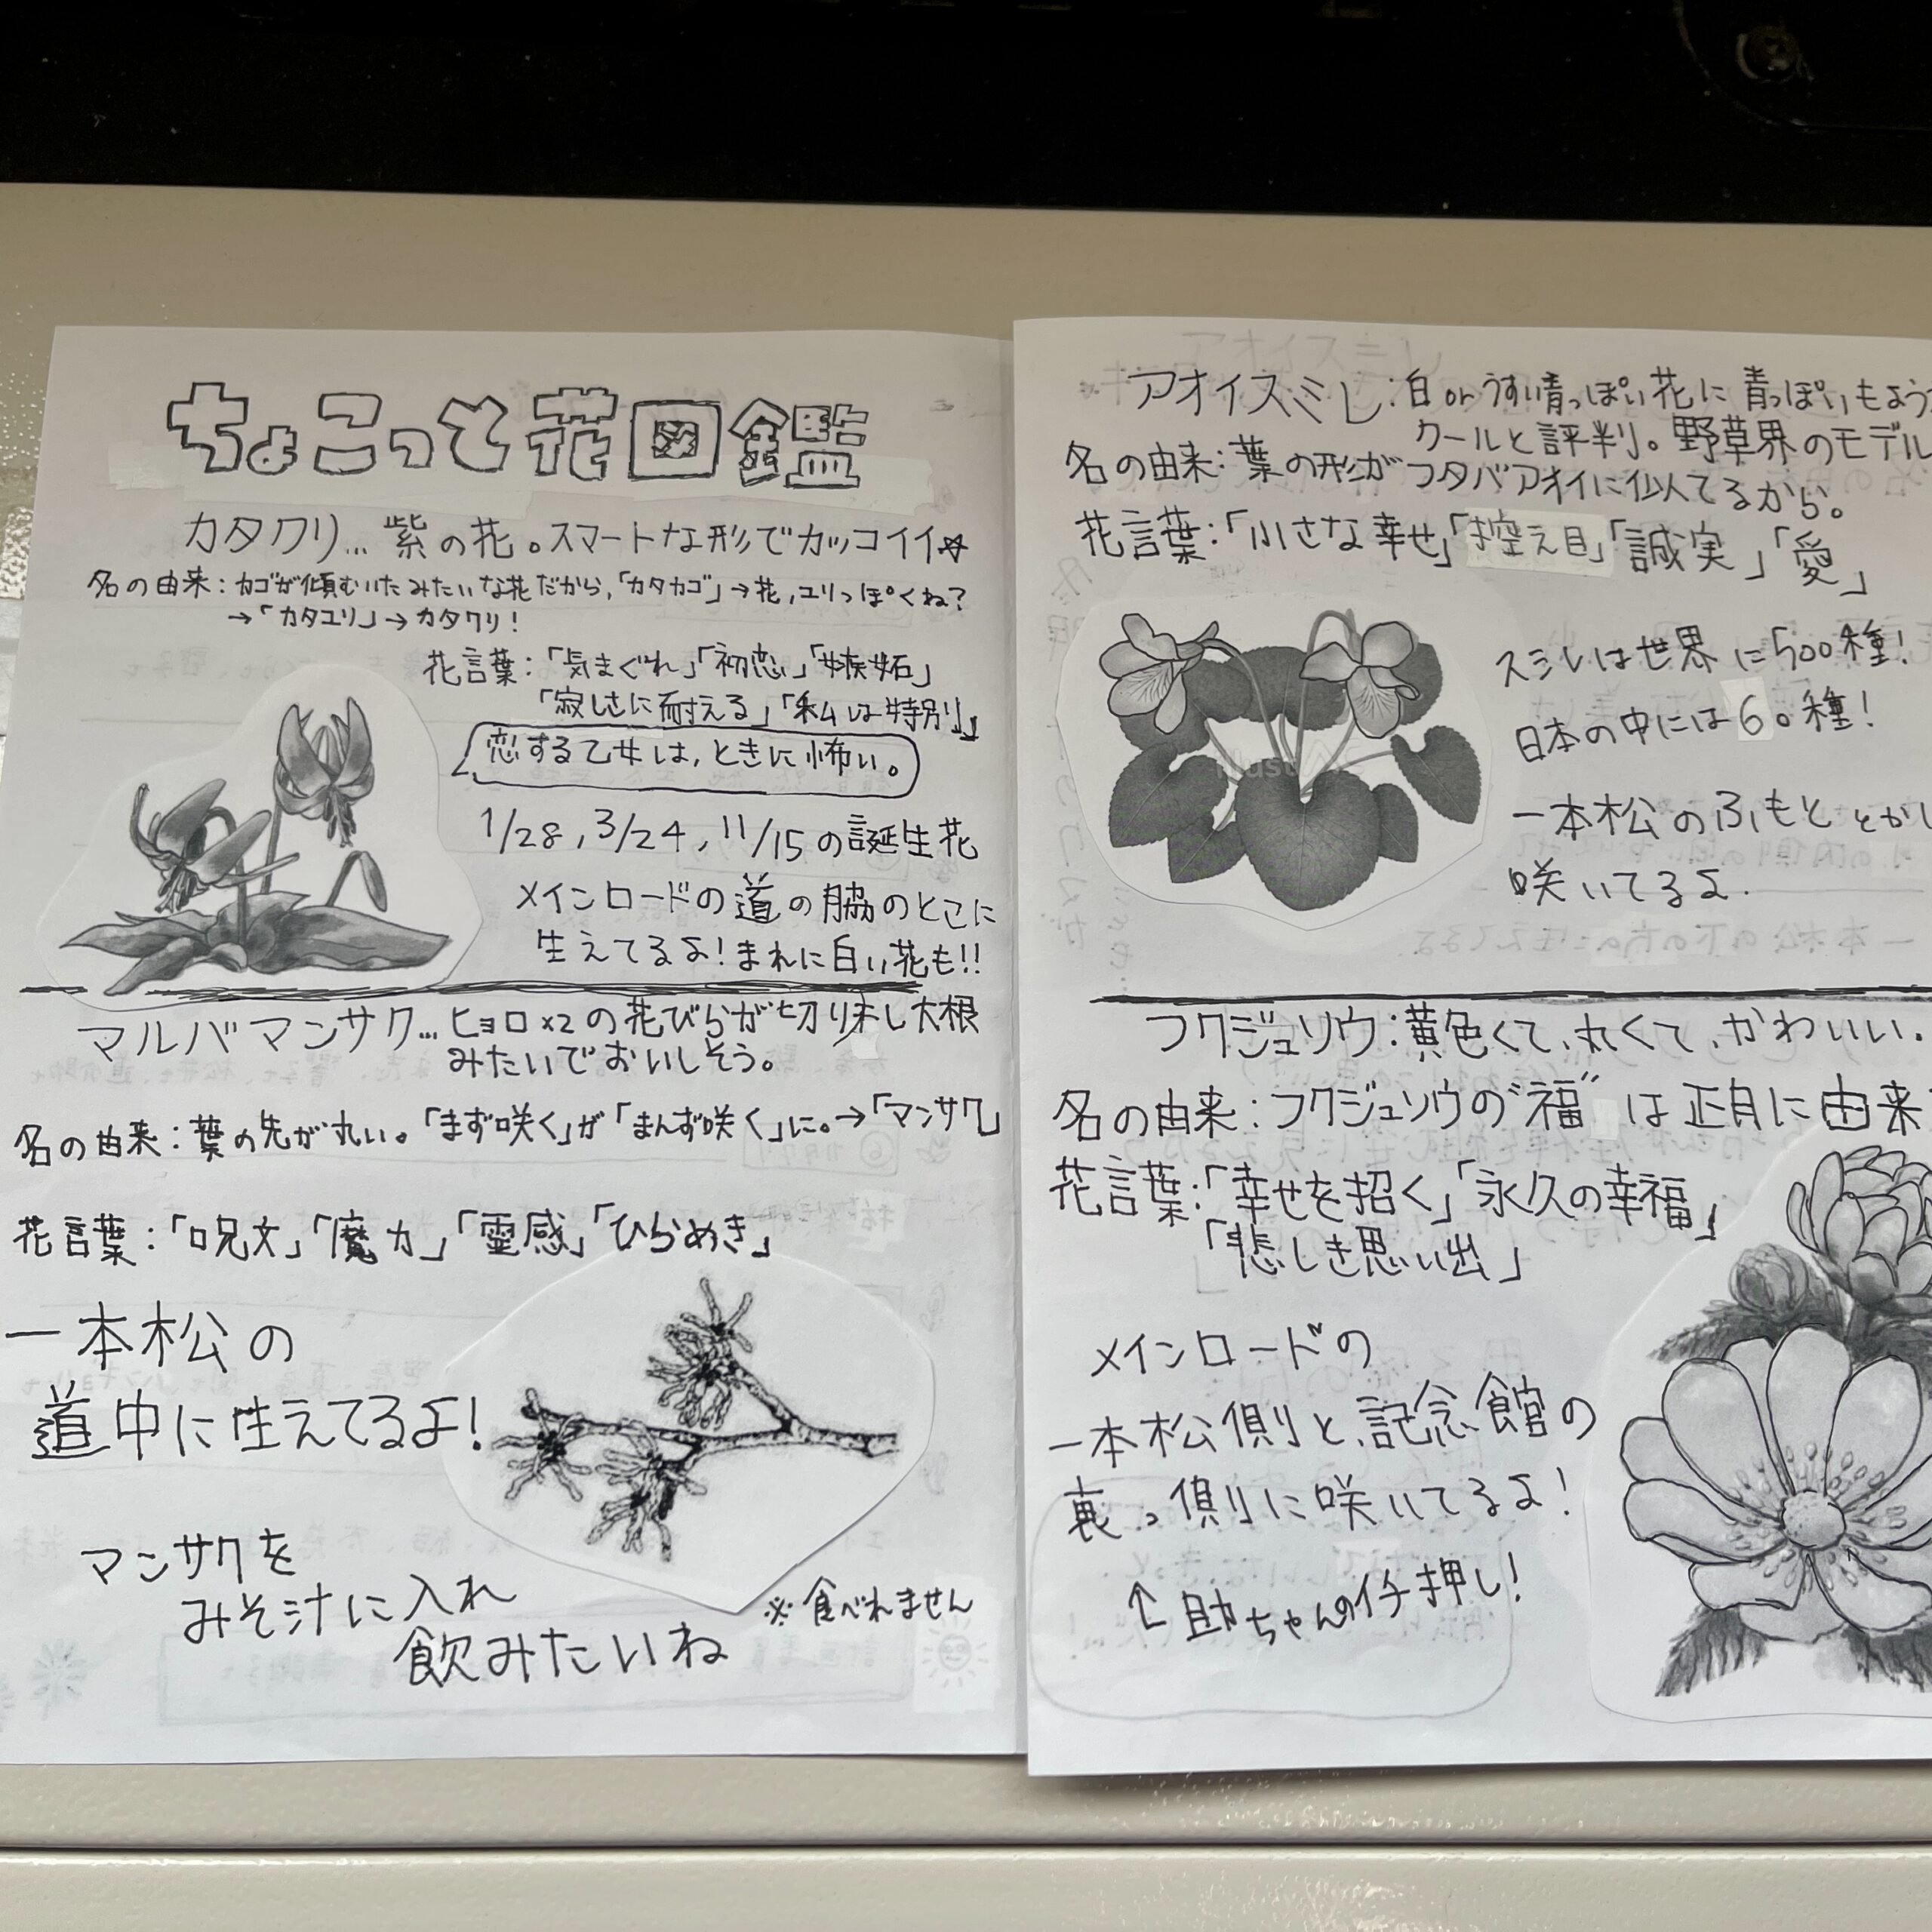 ちょこっと花図鑑
カタクリ…紫の花。スマートな形でカッコイイ☆
名の由来：カゴが傾むいたみたいな花だから,「カタカゴ」→花,ユリっぽくね?
→「カタユリ」→カタクリ!
花言葉：「気まぐれ」「初恋」「嫉妬」
「寂しさに耐える」「私は特別」
恋する乙女は,ときに怖い。
1/28,3/24,11/15の誕生花
メインロードの道の脇のとこに
生えてるよ!まれに白い花も!!
マルバマンサク…ヒョロ×2の花びらが切り干し大根
みたいでおいしそう。
名の由来：葉の先が丸い。「まず咲く」が「まんず咲く」に。→「マンサク」
花言葉：「呪文」「魔力」「霊感」「ひらめき」
一本松の
道中に生えてるよ!
マンサクを
みそ汁に入れ
飲みたいね
※食べれません
アオイスミレ：白orうすい青っぽい花に青っぽいもよう
クールと評判。野草界のモデル
名の由来：葉の形がフタバアオイに似てるから。
花言葉：「小さな幸せ」「控え目」「誠実」「愛」
スミレは世界に500種!
日本の中には60種!
一本松のふもととか
咲いてるよ.
フクジュソウ：黄色くて、丸くて、かわいい.
名の由来：フクジュソウの"福"は正月に由来
花言葉：「幸せを招く」「永久の幸福」
「悲しき思い出」
メインロードの
一本松側と、記念館の
裏っ側に咲いてるよ!
↑助ちゃんのイチ押し!